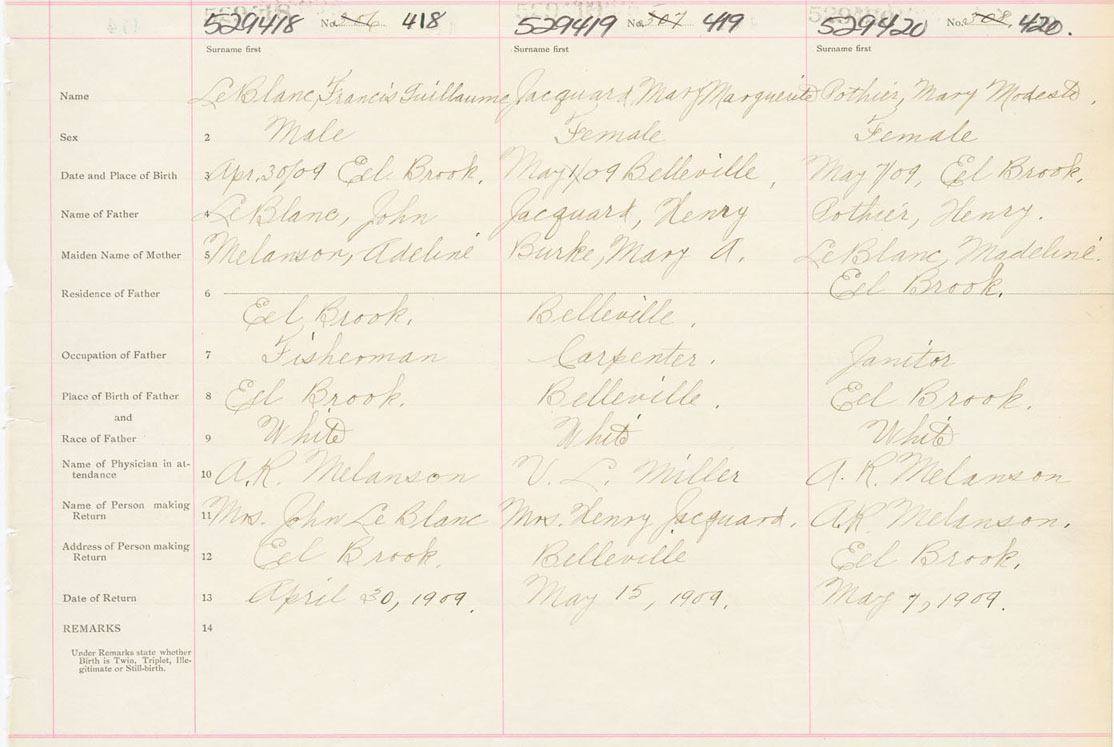 529418 No. 306 418 529419 No. 307 419 529420 No. 308 420.
Surname first Surname first Surname first
Name LeBlanc, Francis Guillaume Jacquard, Mary Marguerite Pothier, Mary Modeste.
Sex 2 Male Female Female
Date and Place of Birth 3 Apr. 30/09 Eel Brook. May 1/09 Belleville, May 7/09, Eel Brook.
Name of Father 4 LeBlanc, John Jacquard, Henry Pothier, Henry.
Maiden Name of Mother 5 Melanson, Adeline Burke, Mary A. LeBlanc, Madeline.
Residence of Father 6 Eel Brook.
Eel Brook. Belleville.
Occupation of Father 7 Fisherman Carpenter. Janitor
Place of Birth of Father 8 Eel Brook. Belleville. Eel Brook.
and
Race of Father 9 White White White
Name of Physician in at-
tendance 10 A.R. Melanson V. L. Miller A. R. Melanson
Name of Person making
Return 11 Mrs. John LeBlanc Mrs. Henry Jacquard. A.R. Melanson.
Address of Person making
Return 12 Eel Brook. Belleville Eel Brook.
Date of Return 13 April 30, 1909. May 15, 1909. May 7, 1909.
REMARKS 14
Under Remarks state whether
Birth is Twin, Triplet, Ille-
gitimate or Still-birth.